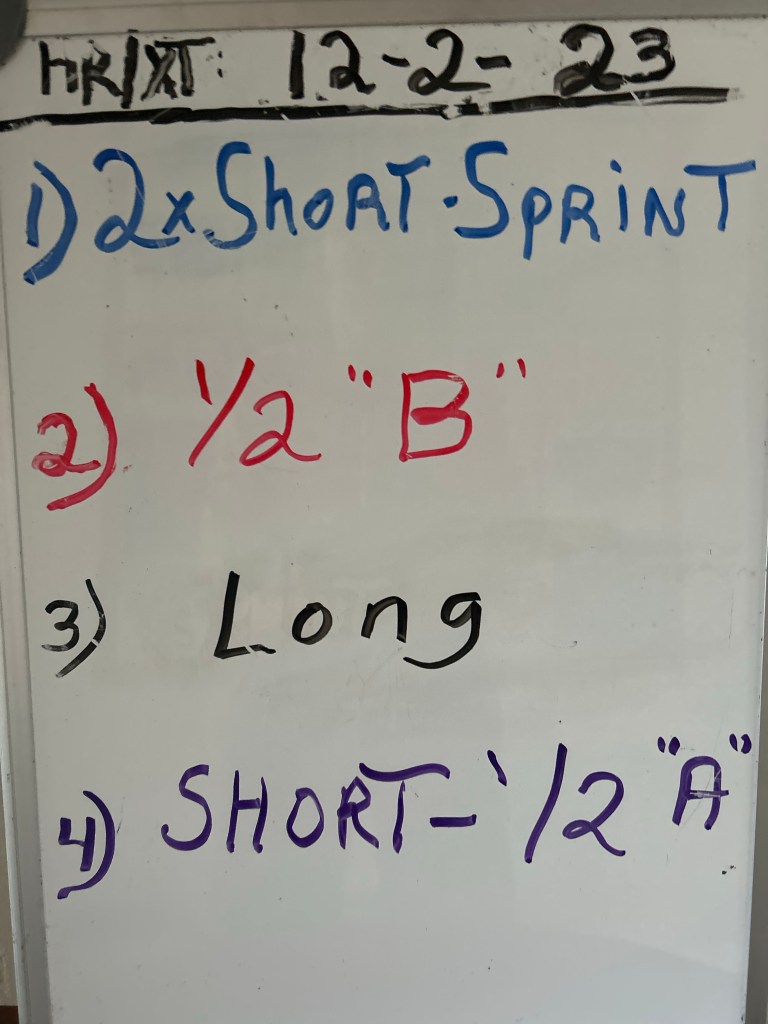 HR/XT: 12-2-23
1) 2x Short-Sprint
2) 1/2 "B"
3) Long
4) SHORT-1/2 "A"